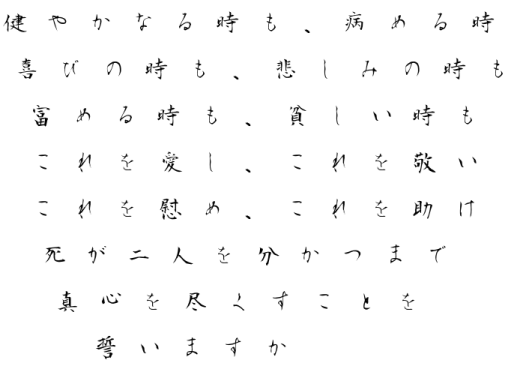 健やかなる時も、病める時
喜びの時も、悲しみの時も
富める時も、貧しい時も
これを愛し、これを敬い
これを慰め、これを助け
死が二人を分かつまで
真心を尽くすことを
誓いますか